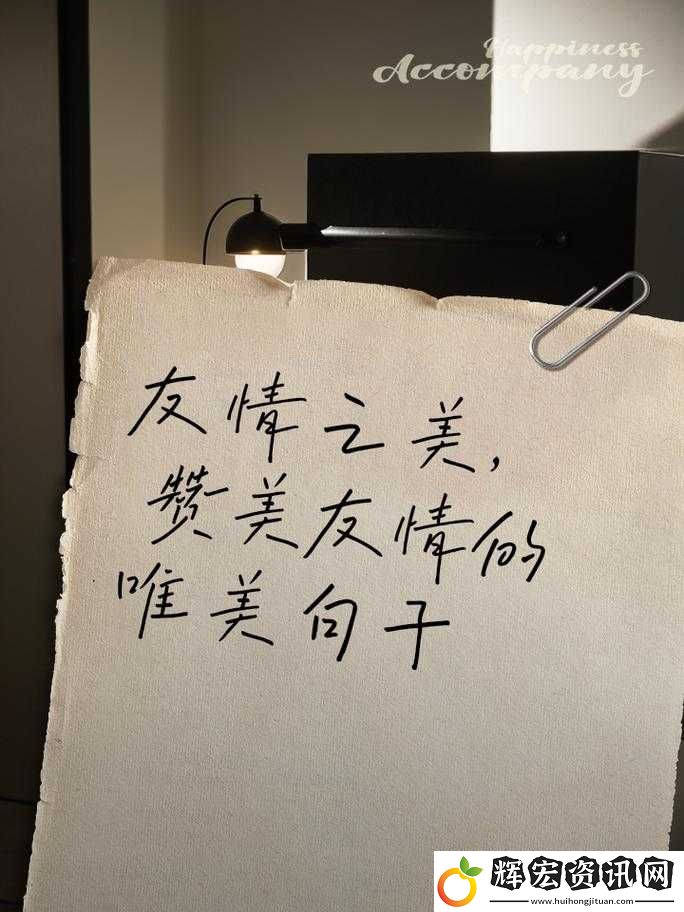 Happiness
Accompany
友情之美,
赞美友情的
唯美句子
辉宏资讯网
www.huihongjituan.com